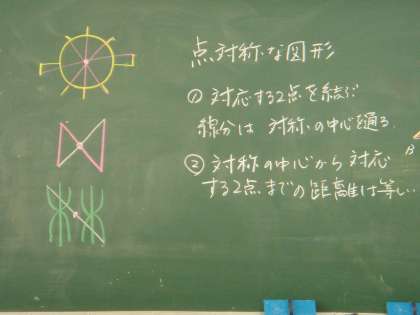 点対称な図形
① 対応する2点を結ぶ
線分は 対称の中心を通る.
② 対称の中心から対応
する2点までの距離は等しい.
B